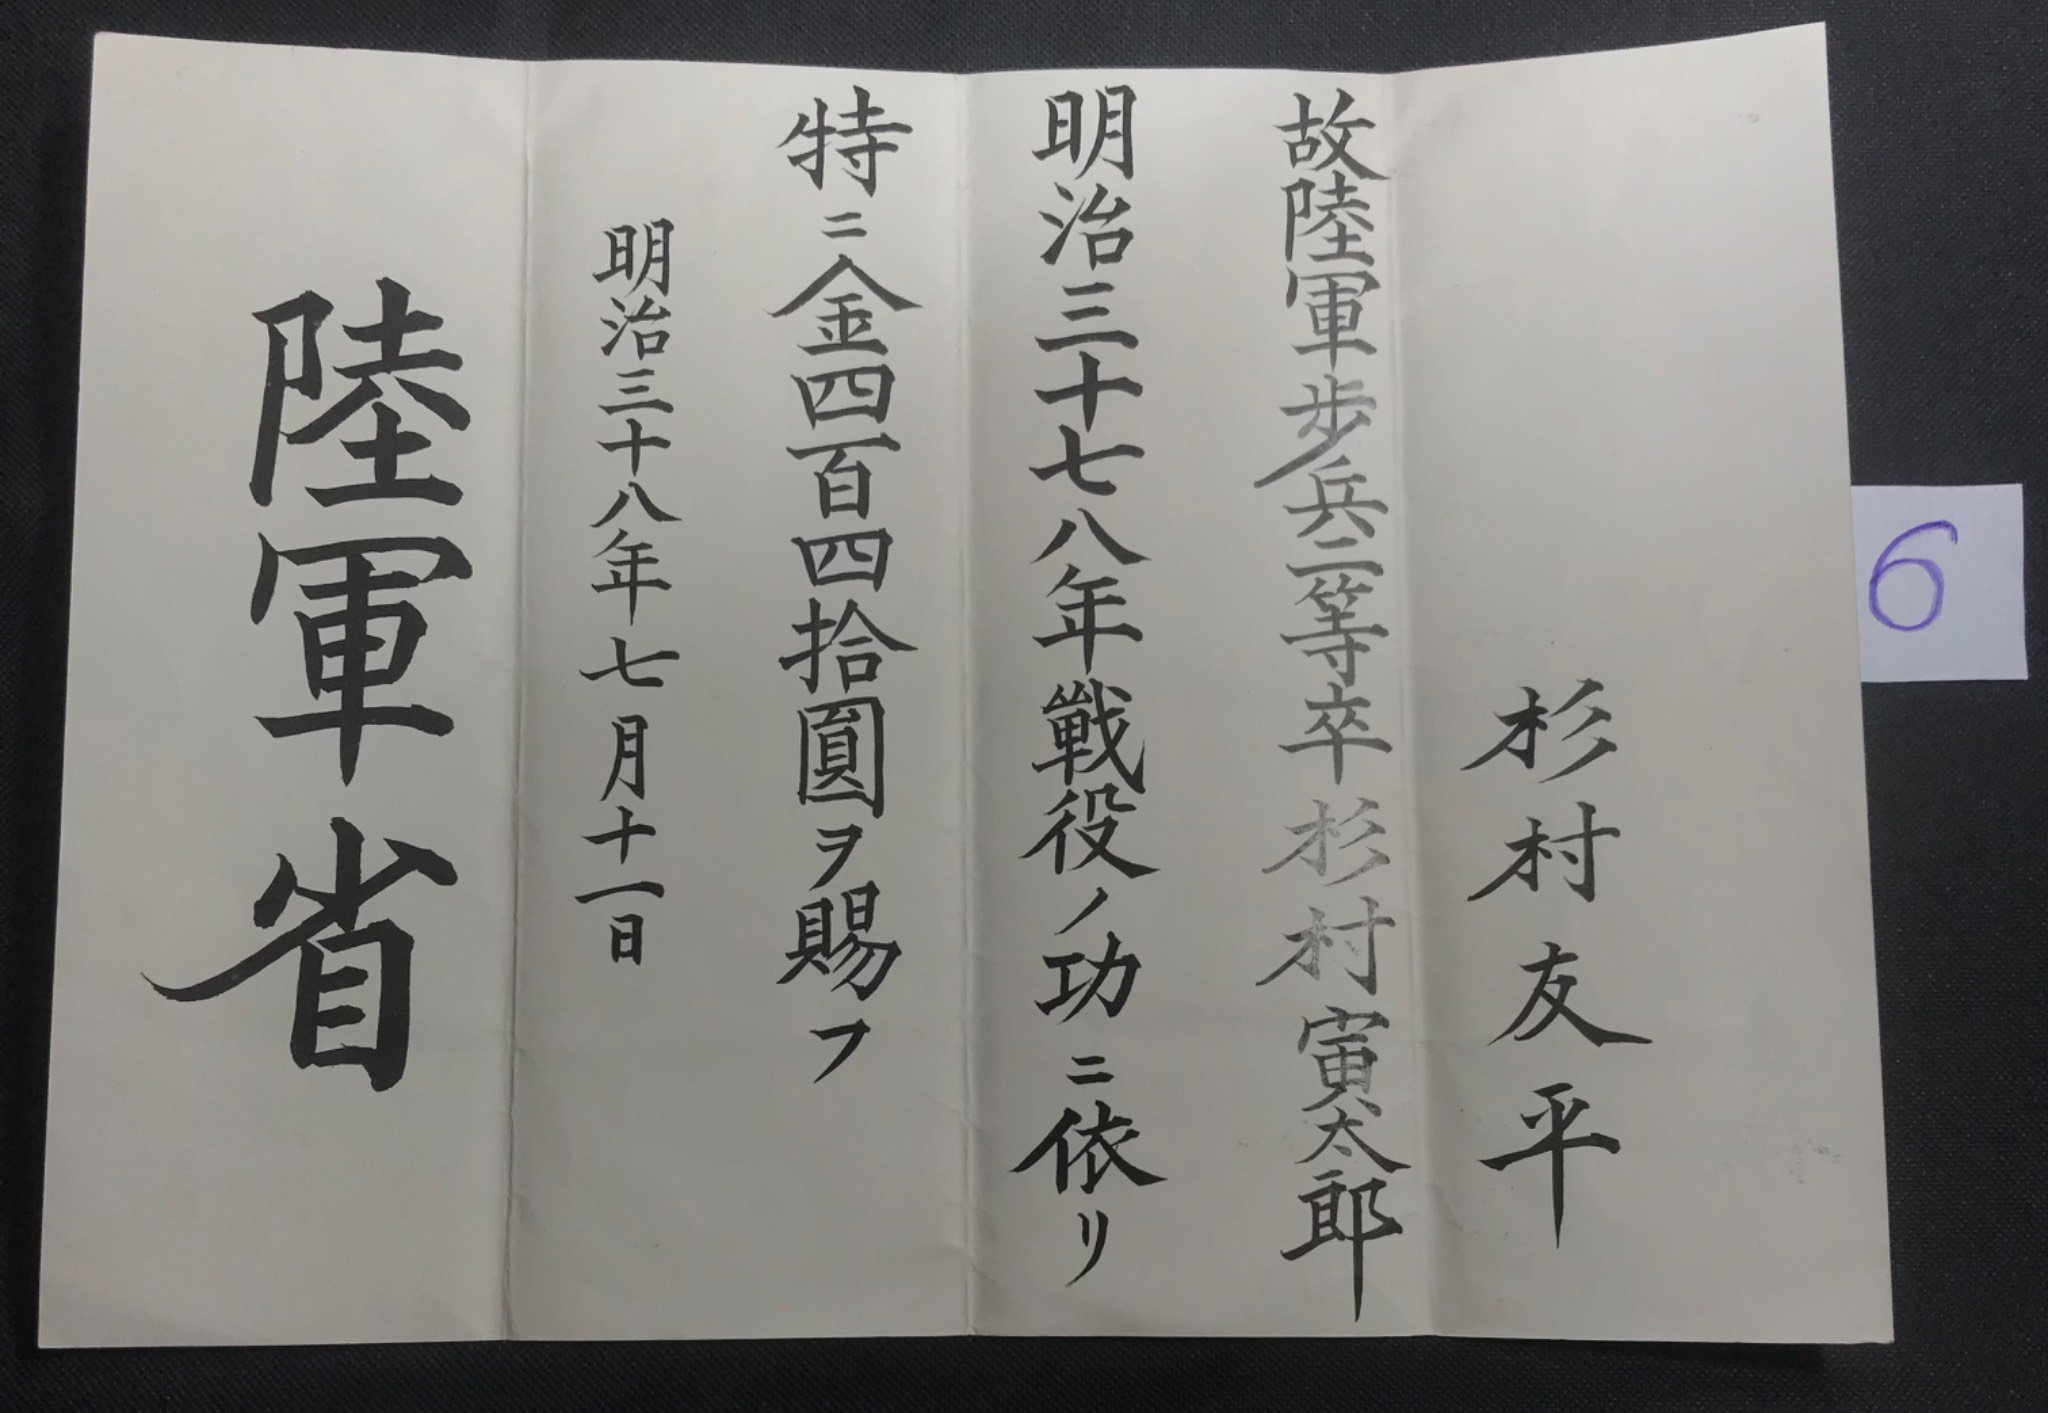 杉村友平
故陸軍歩兵二等卒杉村寅太郎
明治三十七八年戦役ノ功ニ依リ
特ニ金四百四拾圓ヲ賜フ
明治三十八年七月十一日
陸軍省
6